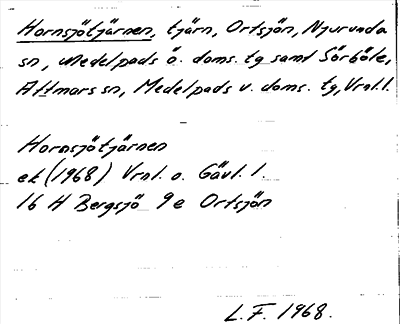 Hornsjötjärnen, tjärn, Ortsjön, Njurunda
sn, Medelpads ö. doms. tg samt Sörböle,
Attmars sn, Medelpads v. doms. tg, Vrnl. l.
Hornsjötjärnen
ek (1968) Vrnl. o. Gävl. l.
16 H Bergsjö 9e Ortsjön
L.F. 1968.